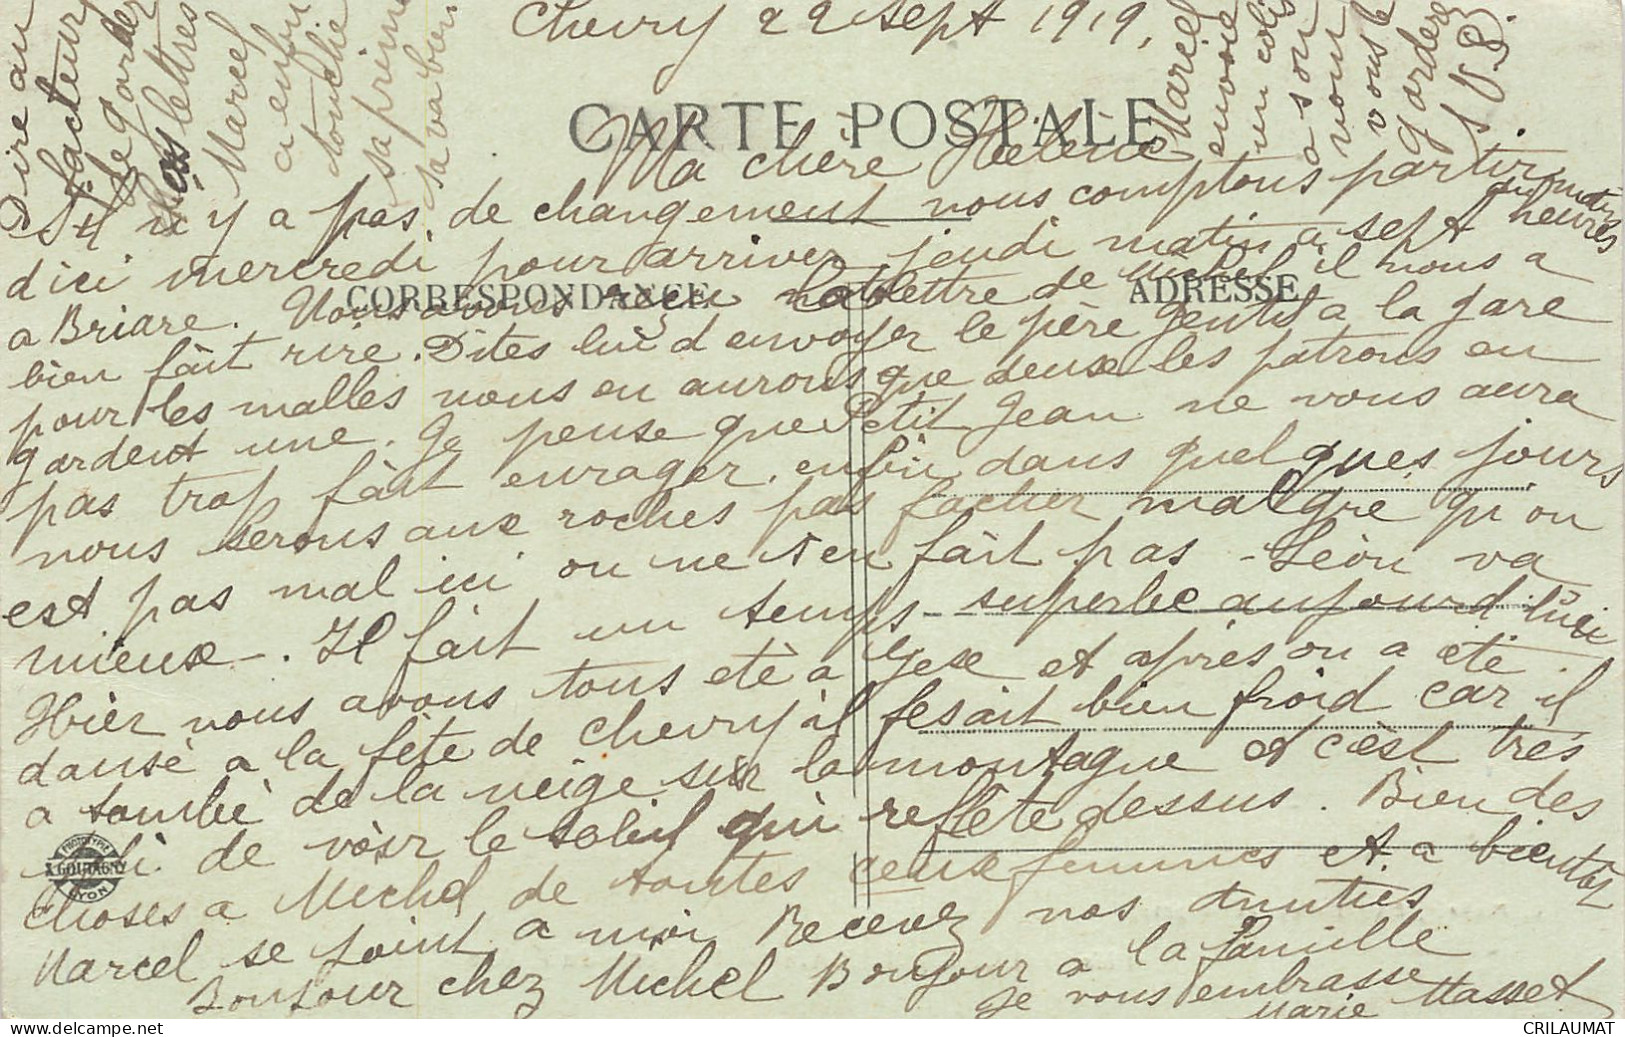 Chevry 22 Sept 1919.
CARTE POSTALE
Ma chère Helène
il n'y a pas de changement nous comptons partir
d'ici mercredi pour arriver jeudi matin a sept heures du matin
CORRESPONDANCE
ADRESSE
a Briare. Nous avons recu la lettre de Michel il nous a
bien fait rire. Dites lui d envoyer le père Gentil a la gare
pour les malles nous en aurons que deux les patrons en
gardent une. Je pense que Petit Jean ne vous aura
pas trop fait enrager. enfin dans quelques jours
nous serons aux roches pas facher malgré qu'on
est pas mal ici on ne s'en fait pas - Léon va
mieux -. Il fait un temps superbe aujourd'hui
Hier nous avons tous etè a Gex et après on a eté
dansé a la fête de Chevry il fesait bien froid car il
a tombé de la neige sur la montagne et c'est très
joli de voir le soleil qui reflète dessus. Bien des
choses a Michel de toutes ceux femmes et a bientôt
Marcel se joint a moi Recevez nos amitiés
Bonjour chez Michel Bonjour a la famille
Je vous embrasse
Marie Masset
Dire au
facteur
de garder
les lettres
Marcel
a enfin
touché
sa prime
sa va bien
Marcel
envoie
un colis
a son
nom
vous le
garderez
S.V.P.
PHOTOTYPIE
X GOUTAGNY
LYON
CRILAUMAT